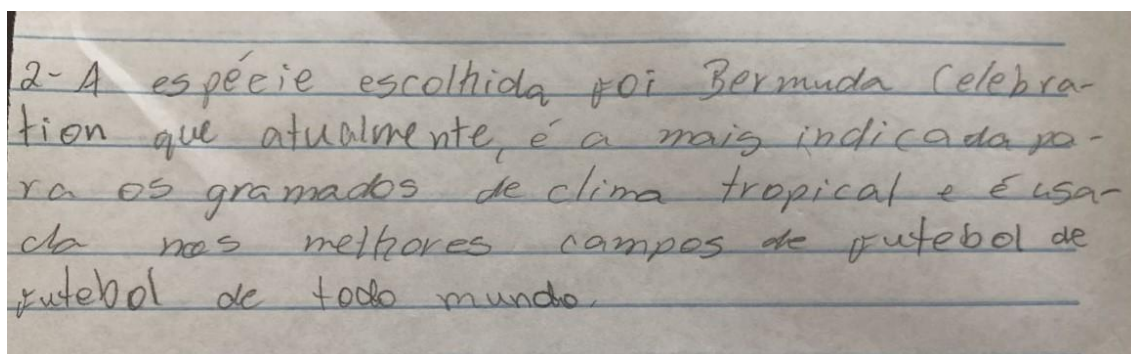 2- A espécie escolhida foi Bermuda Celebra-
tion que atualmente, é a mais indicada pa-
ra os gramados de clima tropical e é usa-
da nos melhores campos de futebol de
futebol de todo mundo.